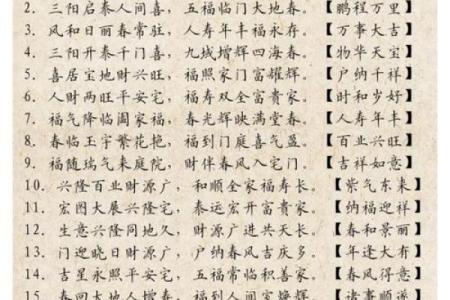 2. 三阳启泰人间喜, 五福临门大地春。【鹏程万里】
3. 风和日丽春常驻, 人寿年丰福永存。【万事大吉】
4. 三阳开泰千门喜, 九域增辉四海春。【物华天宝】
5. 喜居宝地财兴旺, 福照家门富耀辉。【户纳千祥】
6. 人财两旺平安宅, 福寿双全富贵家。【时和岁好】
7. 福气降临阖家福, 春光辉映满堂春。【人寿年丰】
8. 春临玉宇繁花艳, 福到门庭喜气盈。【百业兴旺】
9. 福随瑞气来庭院, 财伴春风入宅门。【吉祥如意】
10. 兴隆百业财源广, 和顺全家福寿长。【紫气东来】
11. 宏图大展兴隆宅, 泰运宏开富贵家。【纳福迎祥】
12. 生意兴隆同地久, 财源广进共天长。【春和景丽】
13. 门迎晓日财源广, 户纳春风吉庆多。【年逢大有】
14. 吉星永照平安宅, 五福常临积善家。【春风得意】
15. 春回大地人增寿, 福到人间富耀辉。【诸事顺遂】